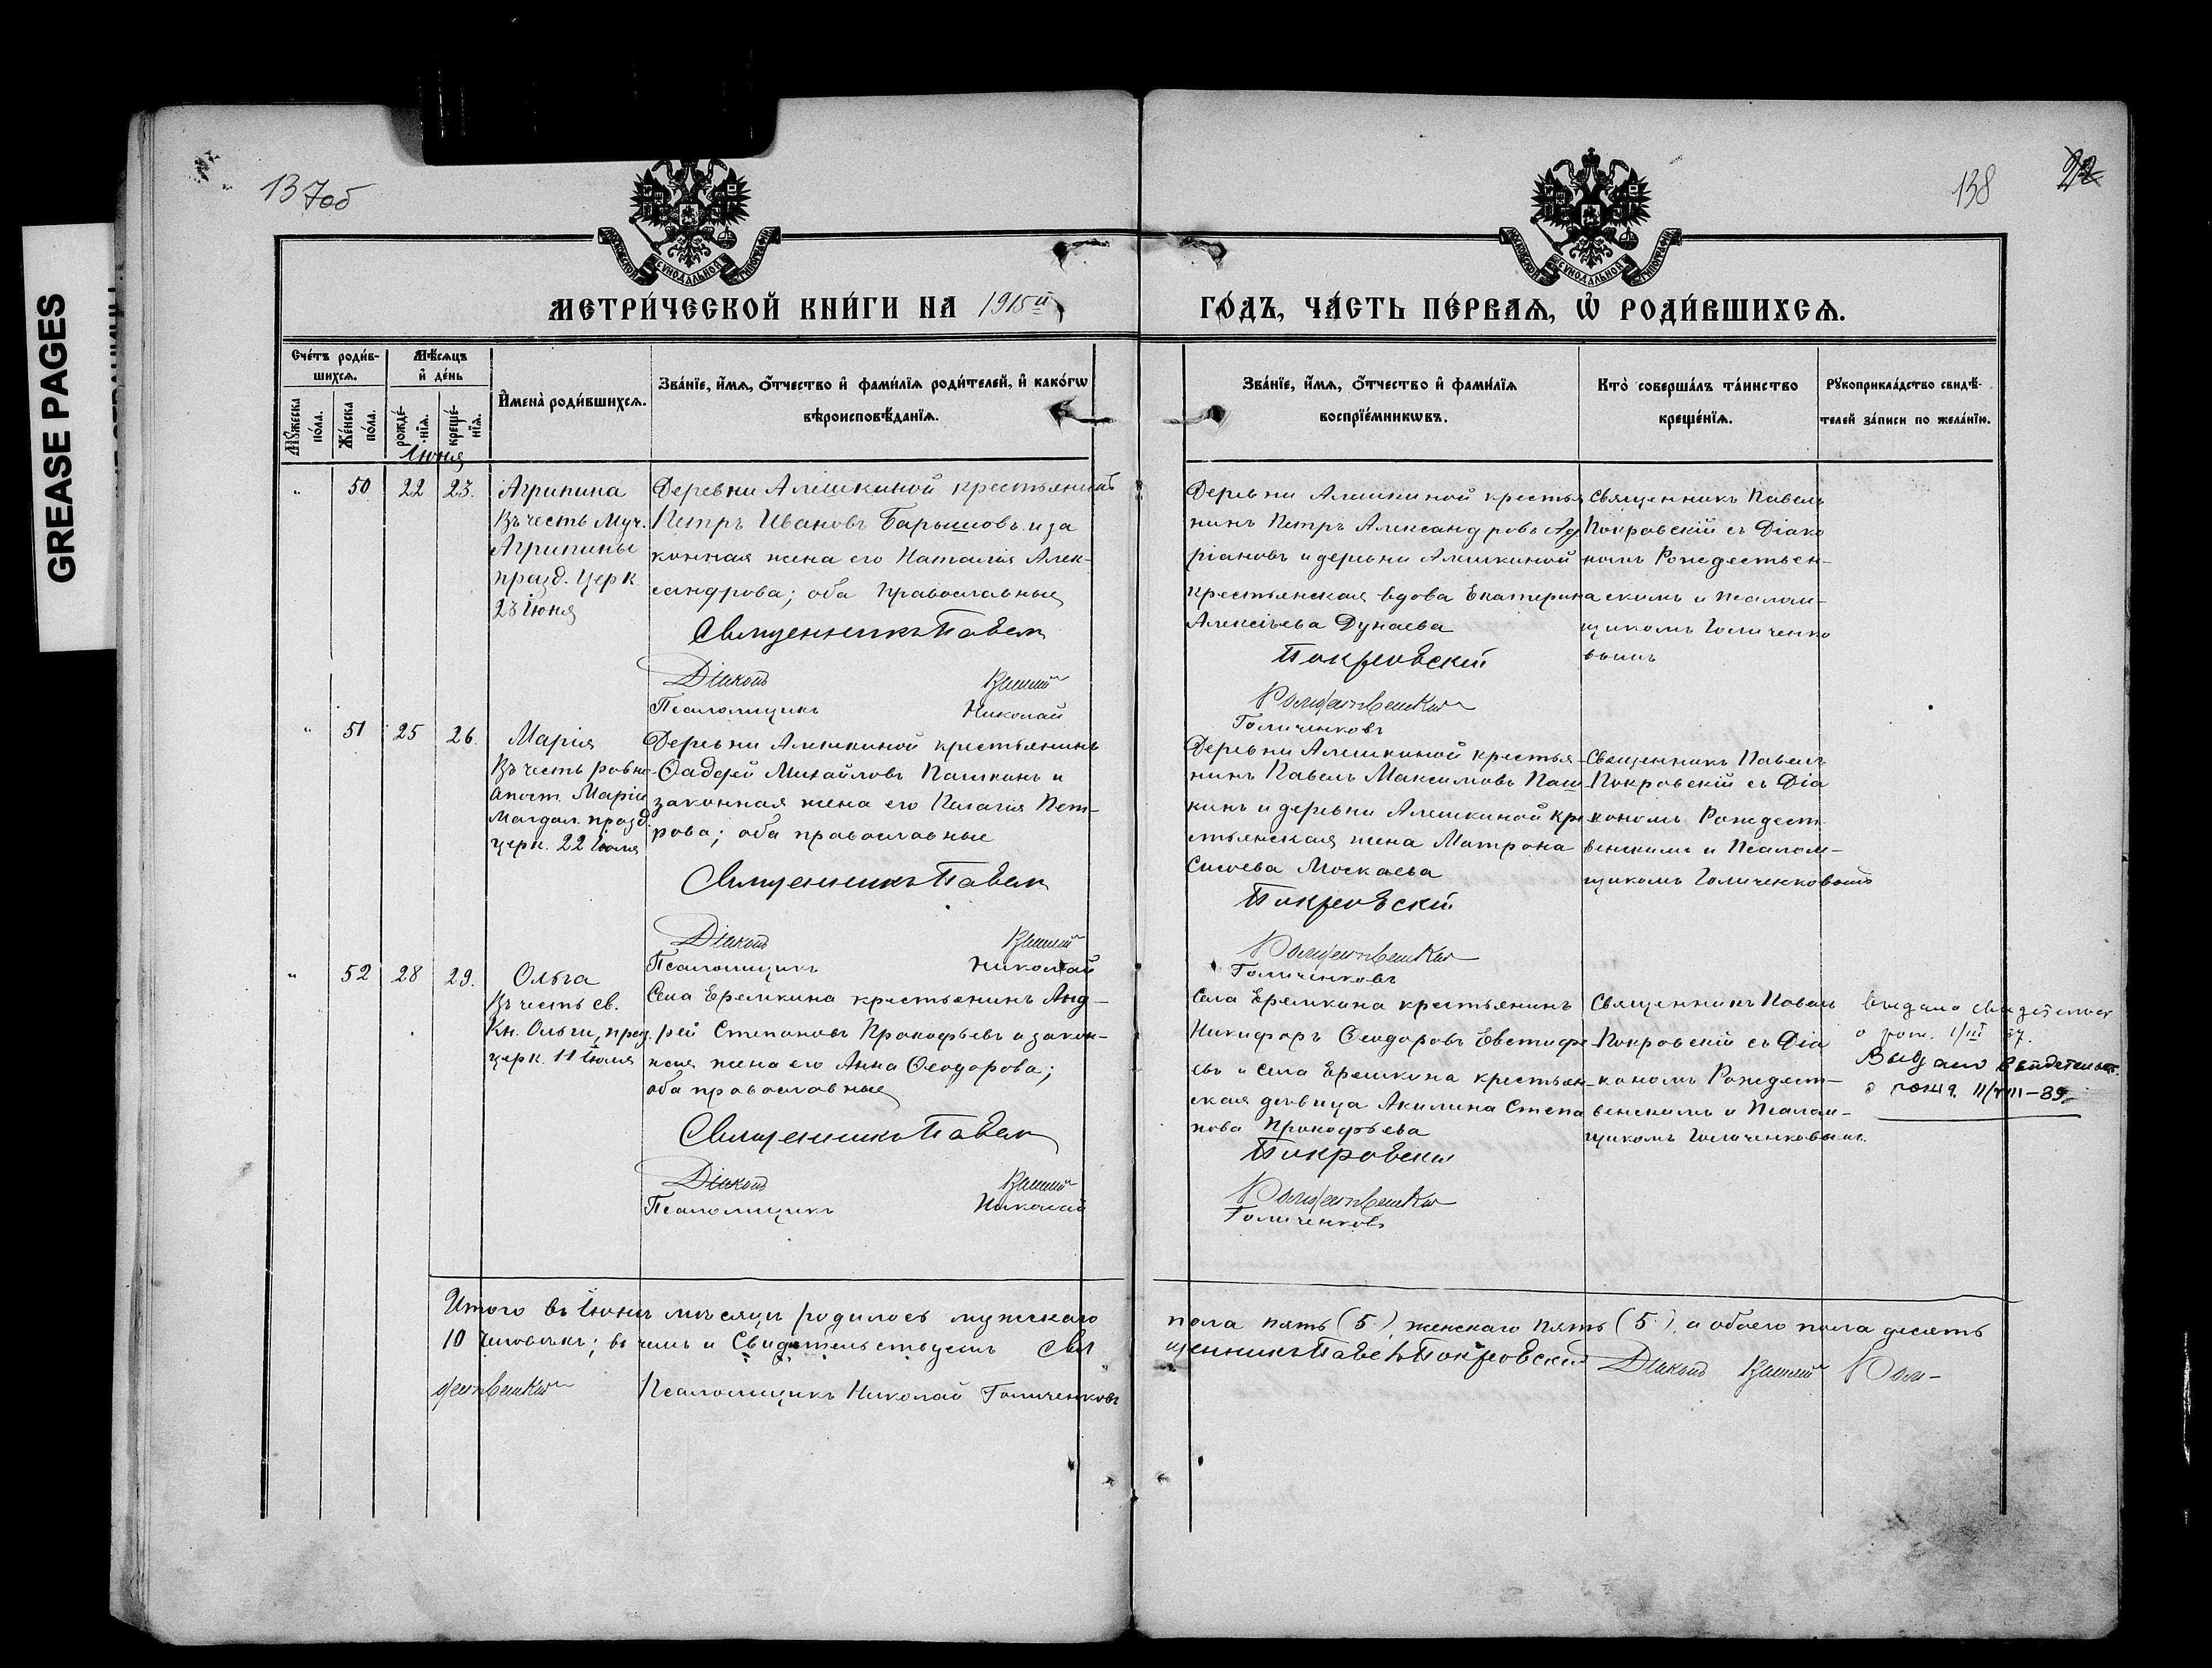 GREASE PAGES
137об
138
22
МОСКОВСКОЙ СѴНОДАЛЬНОЙ ТИПОГРАФІИ
МОСКОВСКОЙ СѴНОДАЛЬНОЙ ТИПОГРАФІИ
МЕТРИ́ЧЕСКОЙ КНИ́ГИ НА 1915й
ГО́ДЪ, ЧА́СТЬ ПЕ́РВАѦ, Ѡ҆ РОДИ́ВШИХСѦ.
Сче́тъ роди́в-
шихсѧ.
Мꙋ́жеска по́ла.
Же́нска по́ла.
Мѣ́сѧцъ
и҆ де́нь
рожде́-
нїѧ.
креще́-
нїѧ.
И҆мена̀ роди́вшихсѧ.
Зва́нїе, и҆́мѧ, ѻ҆́тчество и҆ фами́лїѧ роди́телей, и҆ како́гѡ
вѣроисповѣ́данїѧ.
Зва́нїе, и҆́мѧ, ѻ҆́тчество и҆ фами́лїѧ
воспрїе́мникѡвъ.
Кто̀ соверша́лъ та́инство
креще́нїѧ.
Рꙋкоприкла́дство свидѣ́-
телей за́писи по жела́нїю.
Іюня
" 50 22 23.
Агрипина
Въ честь Муч.
Агрипины
празд. Церк.
23 Іюня
Деревни Алешкиной крестьянинъ
Петръ Ивановъ Барышовъ и за
конная жена его Наталія Алек-
сандрова; оба православные
Священникъ Павелъ
Діаконъ Василій
Псаломщикъ Николай
Деревни Алешкиной крестья
нинъ Петръ Александровъ Ад
ріановъ и деревни Алешкиной
крестьянская вдова Екатерина
Алексіева Дунаева
Покровскій
Рождественскій
Голиченковъ
Священникъ Павелъ
Покровскій съ Діако
номъ Рождествен-
скимъ и псалом-
щикомъ Голиченко
вымъ
" 51 25 26.
Марія
Въ честь равно-
апост. Маріи
Магдал. празд.
церк. 22 Іюля
Деревни Алешкиной крестьянинъ
Фаддей Михайловъ Пашкинъ и
законная жена его Пелагія Пет-
рова; оба православные
Священникъ Павелъ
Діаконъ Василій
Псаломщикъ Николай
Деревни Алешкиной крестья-
нинъ Павелъ Максимовъ Паш
кинъ и деревни Алешкиной кре
стьянская жена Матрона
Сысоева Москаева
Покровскій
Рождественскій
Голиченковъ
Священникъ Павелъ
Покровскій съ Діа
кономъ Рождест
венскимъ и Псалом-
щикомъ Голиченковымъ
" 52 28 29.
Ольга
Въ честь св.
Кн. Ольги, празд.
церк. 11 Іюля
Села Еремкина крестьянинъ Анд-
рей Степановъ Прокофьевъ и закон-
ная жена его Анна Ѳеодорова;
оба православные
Священникъ Павелъ
Діаконъ Василій
Псаломщикъ Николай
Села Еремкина крестьянинъ
Никифоръ Ѳеодоровъ Евстифе
евъ и села Еремкина крестьян-
ская дѣвица Акилина Степа
нова Прокофьева
Покровскій
Рождественскій
Голиченковъ
Священникъ Павелъ
Покровскій съ Діа
кономъ Рождест-
венскимъ и Псалом-
щикомъ Голиченковымъ.
Выдано свидетельст
о рож. 1/III 37.
Выдано свидетельст.
о рожд. 11/VIII-39
Итого въ Іюнѣ мѣсяцѣ родилось мужскаго пола пять (5.), женскаго пять (5.), а обоего пола десять
10 человѣкъ; въ чемъ и Свидѣтельствуемъ Свя щенникъ Павелъ Покровскій Діаконъ Василій Рож-
дественскій Псаломщикъ Николай Голиченковъ